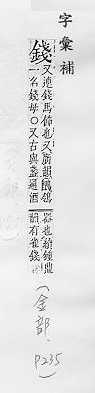 字彙補
錢
又連錢馬飾也又韻鶺鴒
一名錢母○又古與盞通酒
器也錢
韻有雀錢
(金部, P235)